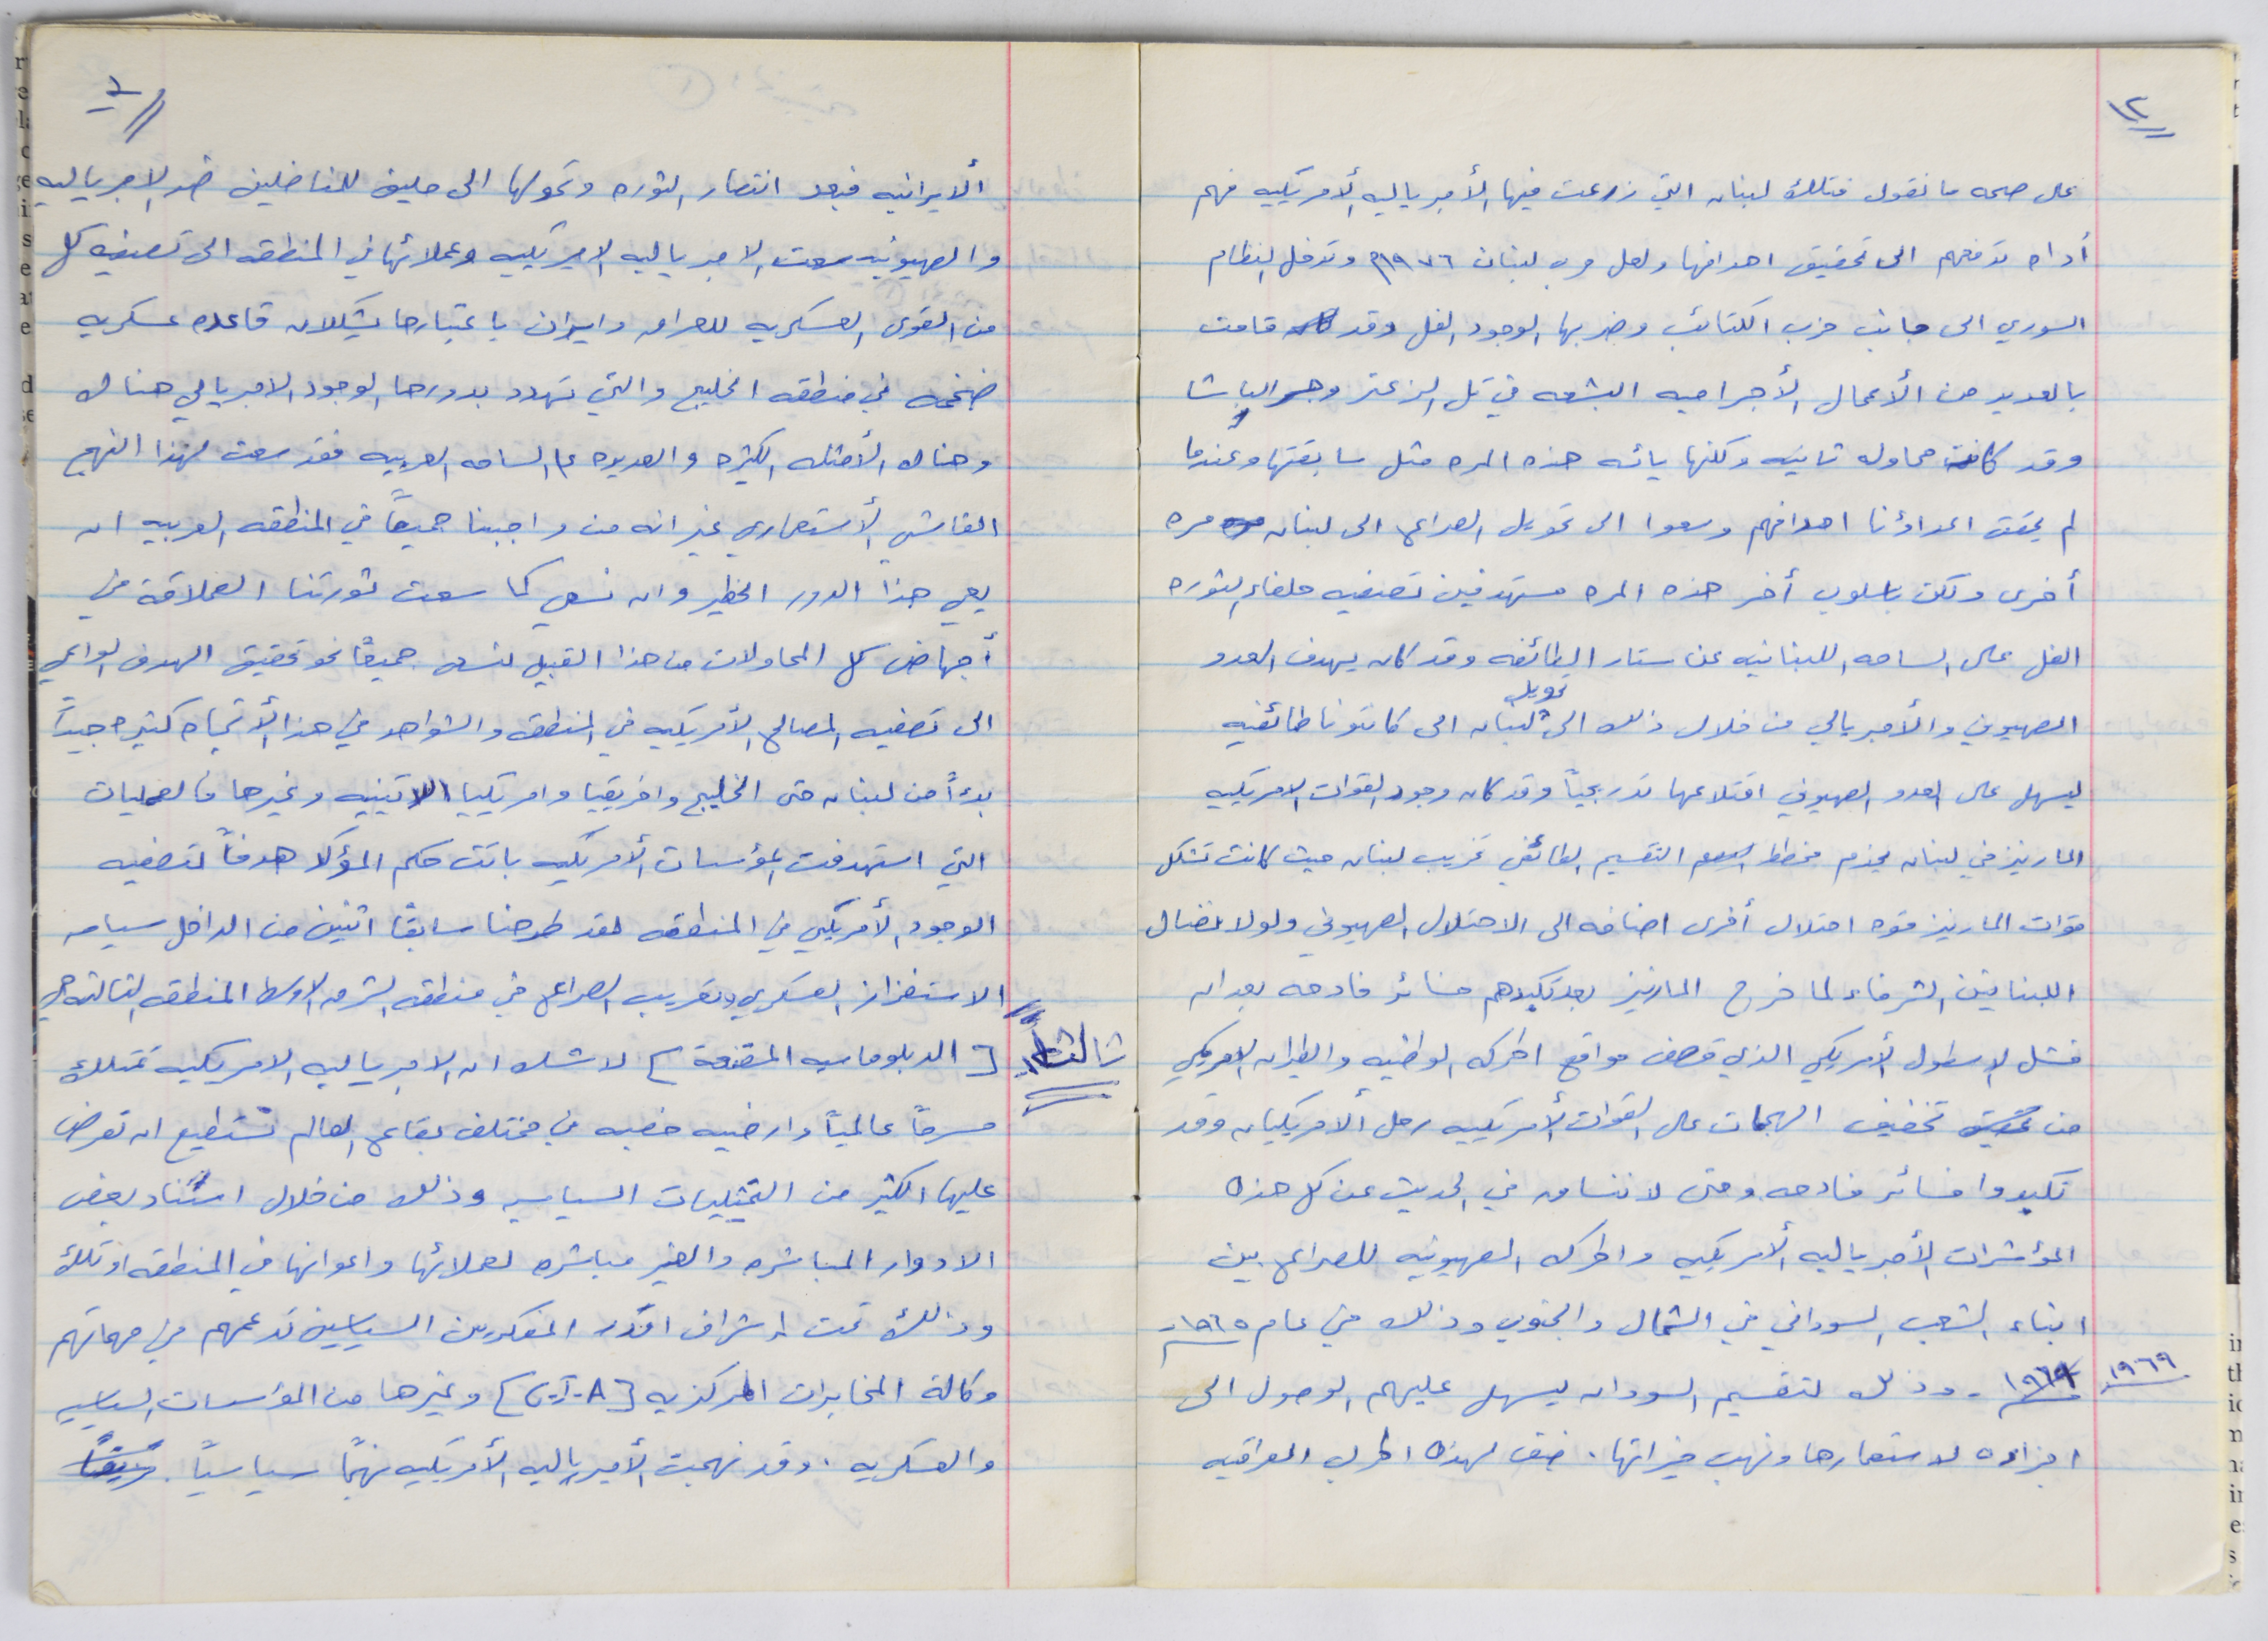 ١٢
على صحه ما نقول فتلك لبنان التي زرعت فيها الأمبرياليه الأمريكيه فهم
أداه تدفعهم الى تحقيق اهدافها ولعل حرب لبنان ١٩٧٦م وتدخل النظام
السوري الى جانب حزب الكتائب وضربها الوجود الفل وقد قامت
بالعديد من الأعمال الأجراميه البشعه في تل الزعتر وجسر الباشا
وقد كانت محاوله ثانيه ولكنها يائسه هذه المره مثل سابقتها وعندما
لم يحقق اعداؤنا اهدافهم وسعوا الى تحويل الصراع الى لبنان مره
أخرى ولكن باسلوب أخر هذه المره مستهدفين تصفيه حلفاء الثوره
الفل على الساحه اللبنانيه عن ستار الطائفه وقد كان يهدف العدو
الصهيوني والأمبريالي من خلال ذلك الى تحويل لبنان الى كانتونا طائفيه
ليسهل على العدو الصهيوني اقتلاعها تدريجياً وقد كان وجود القوات الامريكيه
المارينز في لبنان يخدم مخطط التقسيم الطائفي غريب لبنان حيث كانت تشكل
قوات المارينز قوه احتلال أخرى اضافه الى الاحتلال الصهيوني ولولا نضال
اللبنانين الشرفاء لما خرج المارينز بعد تكبدهم خسائر فادحه بعد ان
فشل الاسطول الأمريكي الذي قصف مواقع الحركه الوطنيه والطيران الامريكي
من تخفيف الهجمات على القوات الأمريكيه رحل ألامريكيان وقد
تكبدوا خسائر فادحه وحتى لا ننسا في الحديث عن كل هذه
المؤشرات الأمبرياليه ألامريكيه والحركه الصهيونيه للصراع بين
ابناء الشعب السوداني في الشمال والجنوب وذلك في عام ١٩٦٥ -
١٩٦٩
١٩٦٩ - وذلك لتقسيم السودان ليسهل عليهم الوصول الى
اجزاءه لاستعمارها ونهب خيراتها . ضف لهذه الحرب العراقيه
ألايرانيه فبعد انتصار الثوره وتحولها الى حليف للمناضلين ضد الامبرياليه
والصهيونيه سعت الامبرياليه الامريكيه وعملائها في المنطقه الى تصفيه كل
من القوى العسكريه للعراق وايران باعتبارها يشكلان قاعده عسكريه
ضخمه في منطقه الخليج والتي تهدد بدورها الوجود الامبريالي هناك
وهناك الأمثله الكثيره والعديده على الساحه العربيه فقد سعت لهذا النهج
الفاشي الأستعماري غير انه من واجبنا جميعاً في المنطقه العربيه ان
يعي هذا الدور الخطير وان نسعى كما سعت ثورتنا العملاقة في
أجهاض كل المحاولات من هذا القبيل لنسعى جميعاً نحو تحقيق الهدف الواعي
الى تصفيه المصالح الأمريكيه في المنطقه والشواهد في هذا الأتجاه كثيره جيداً
بدءاً من لبنان حتى الخليج وافريقيا وامريكيا الاتينيه وغيرها فالعمليات
التي استهدفت المؤسسات ألأمريكيه باتت حكم المؤكد هدفاً لتصفيه
الوجود الأمريكي في المنطقه لقد طرحنا سابقاً اثنين من الداخل سياسه
الاستفزاز العسكري وتعريب الصراع في منطقه الشرق الاوسط المنطقه الثالثه هي
ثالثاً
[ الدبلوماسيه المقنعة ] لا شك ان الامبرياليه الامريكيه تمتلك
مسرحاً عالمياً وارضيه خصبه في مختلف بقاع العالم تستطيع ان تعرض
عليها الكثير من التمثيليات السياسيه وذلك من خلال اسناد بعض
الادوار المباشره والغير مباشره لعملائها واعوانها في المنطقه او تلك
وذلك تحت إشراف اقدر المفكرين السياسين تدعمهم في مهماتهم
وكالة المخابرات المركزيه [ ] وغيرها من المؤسسات السياسيه
والعسكريه . وقد نهجت الأمبرياليه الأمريكيه نهجاً سياسياً